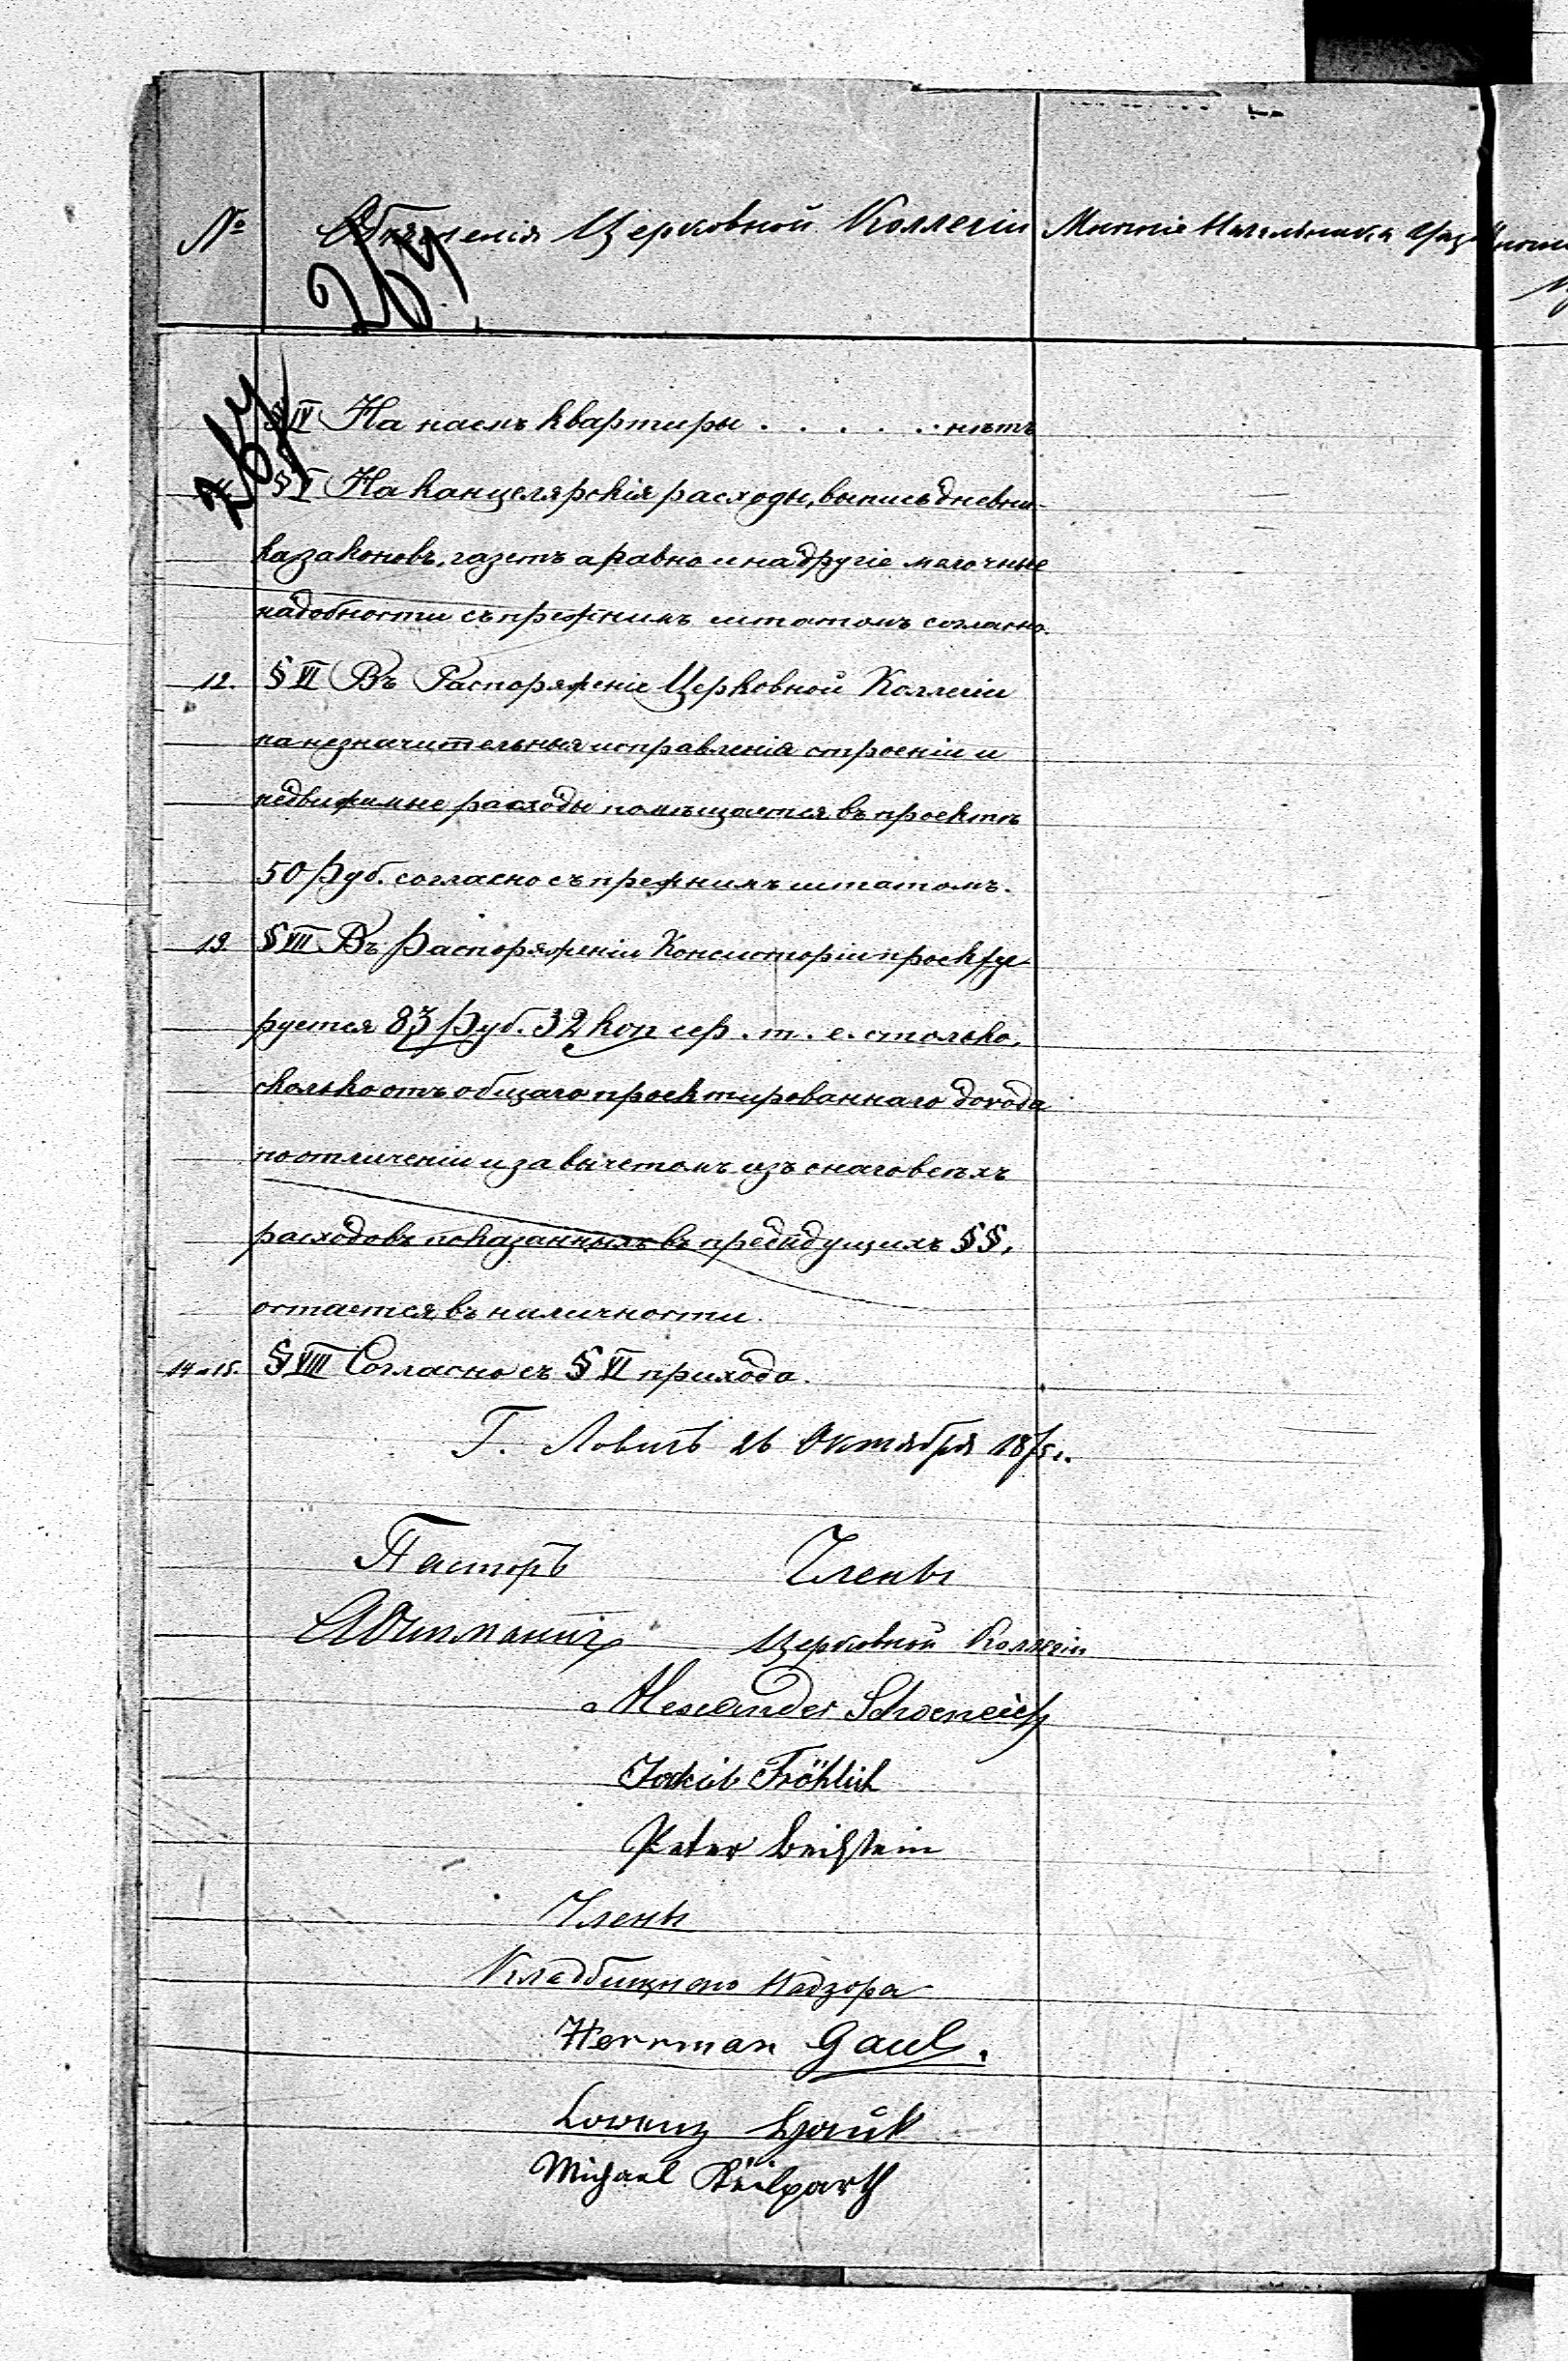 № Объясненія Церковной Коллегіи Мнѣніе Начальника
264
264
§ IV На наемъ квартиры . . . . . . нѣтъ
§ V На канцелярскія расходы, выпись дневни-
ка законовъ, газетъ а равно и на другіе мелочные
надобности съ прежнимъ штатомъ согласно.
12. § VI Въ Распоряженіе Церковной Коллегіи
на незначительныя исправленія строеніи и
помѣщается въ проектѣ
50 Руб. согласно съ прежнимъ штатомъ.
13. § VII Въ Распоряженіи Консисторіи проекту-
руется 83 Руб. 32 коп сер. т. е. столько,
сколько отъ общаго проектированнаго дохода
по отличеніи и за вычетомъ изъ онаго всѣхъ
расходовъ показанныхъ въ предидущихъ §§,
остается въ наличности.
14 и 15. § VIII Согласно съ § VI прихода.
Г. Ловичъ 26 Октября 1875 г.
Пасторъ Члены
Церковной Коллегіи
Alexander Schoeneich
Jakob Fröhlich
Peter Beichstein
Члены
Кладбищнаго Надзора
Herrman Gaul.
Lorenz
Michael